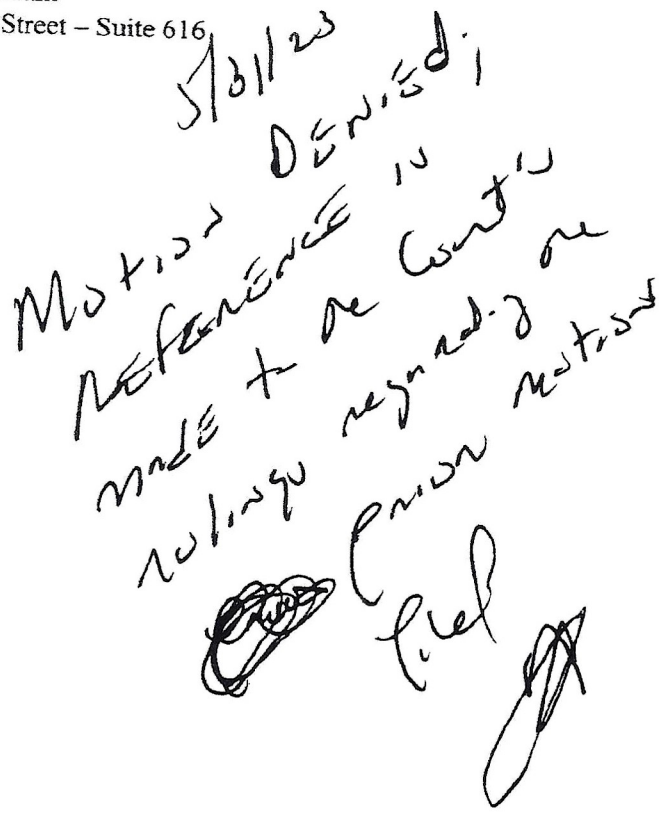 Street – Suite 616
5/31/23
Motion DENIEd;
REFERENCE is
madE to the Court's
rulings regarding the
prior motions
filed